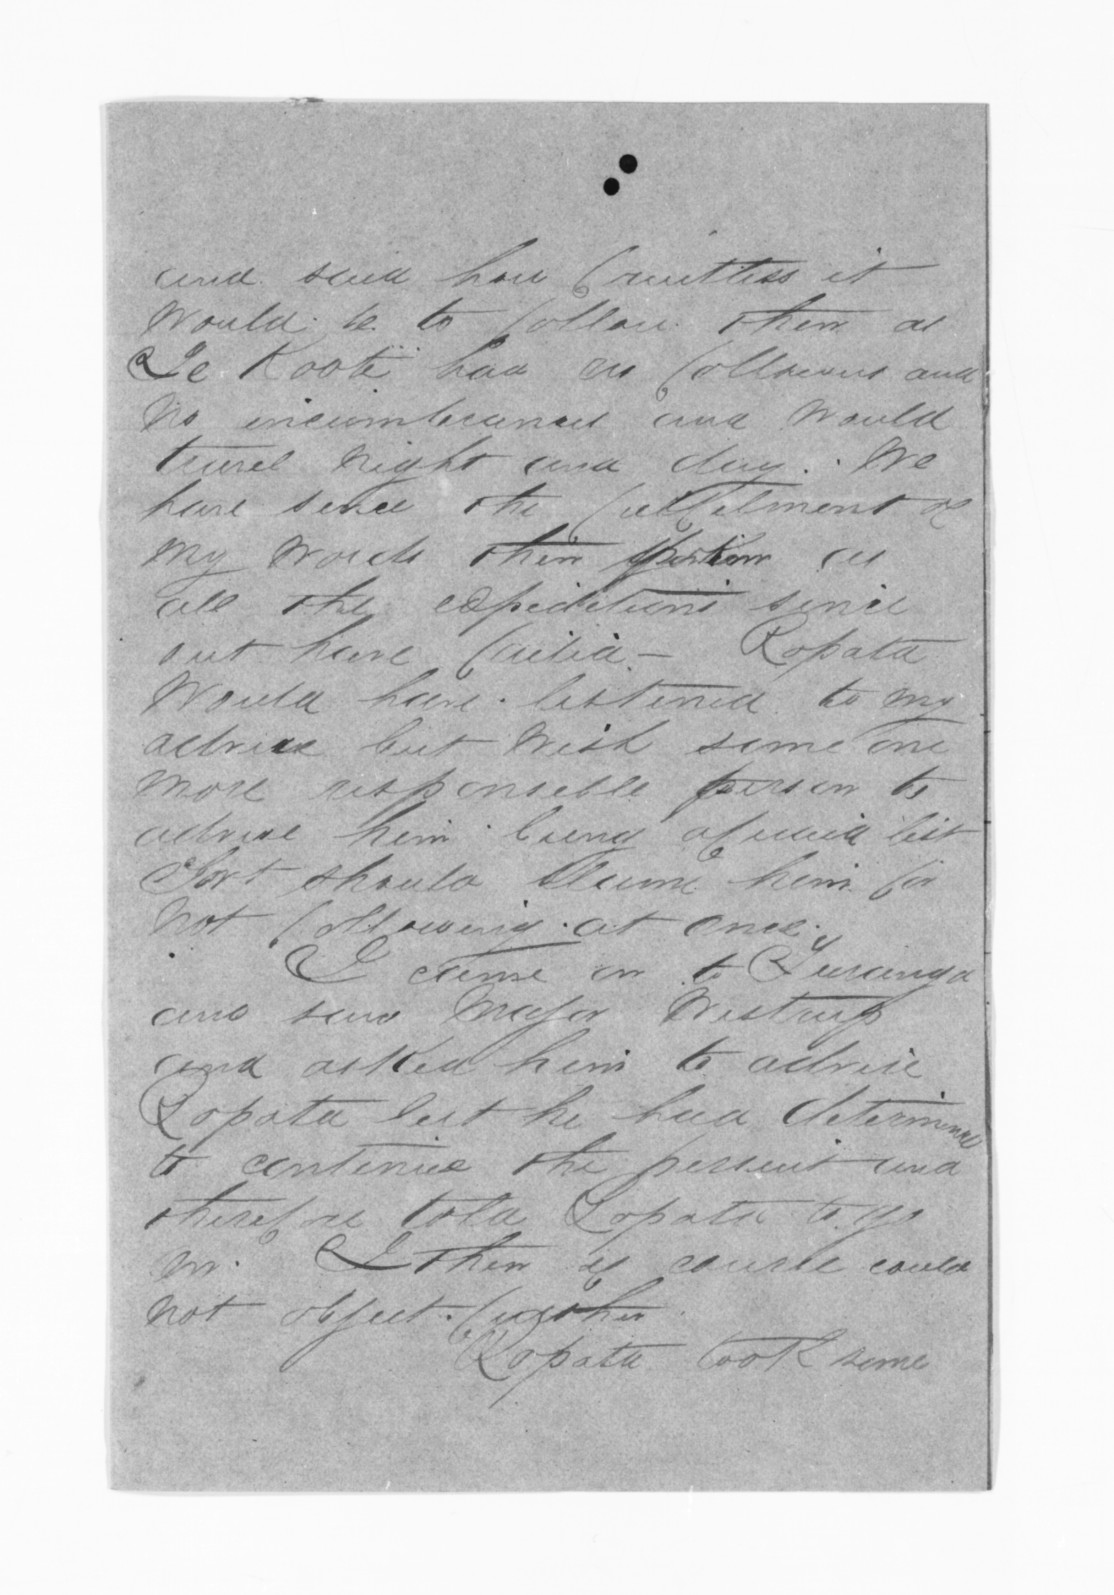 and said how fruitless it
would be to follow them as
Te Kooti had no followers and
no incumbrances and would
travel night and day. We
have since the fulfilment of
my words then spoken as
all the expeditions since
out have failed – Ropata
would have listened to my
advice but wish some one
more responsible person to
advise him being afraid lest
Govt should blame him for
not following at once.
I came on to Turanga
and saw Major Westrup
and asked him to advise
Ropata but he had determined
to continue the persuit and
therefore told Ropata to go
on. I then of course could
not object further.
Ropata took some